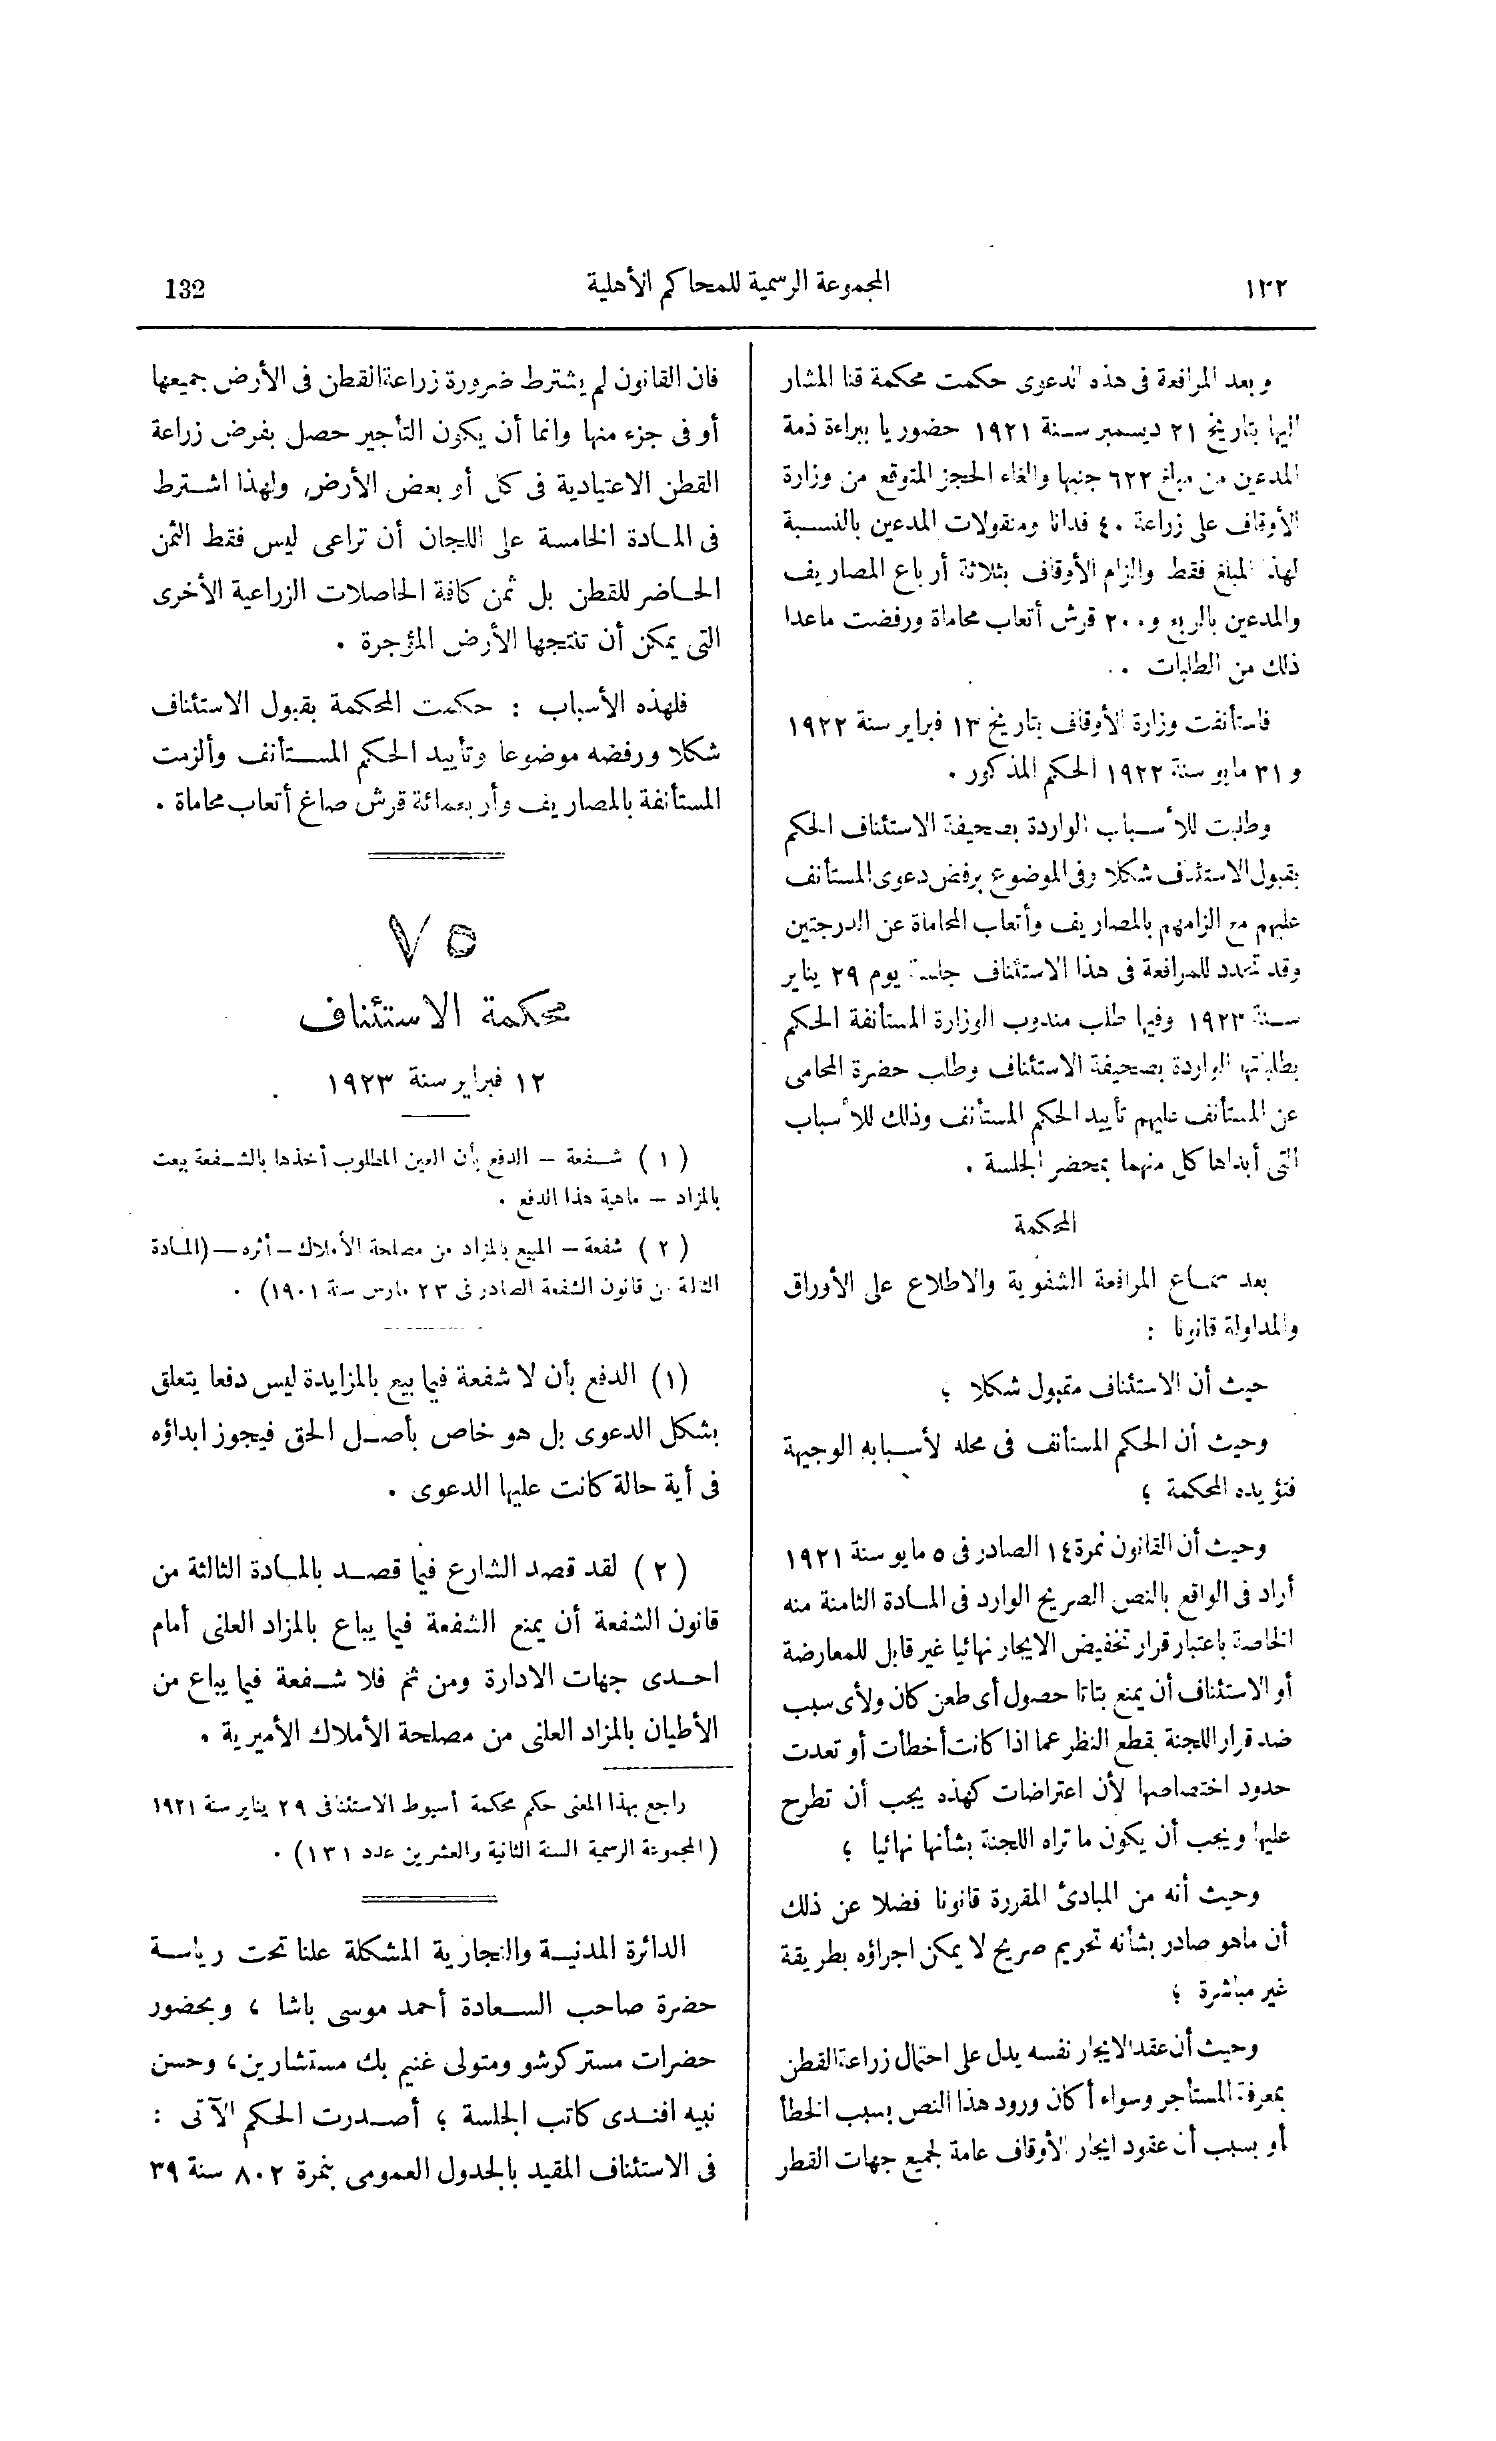 ١٣٢
المجموعة الرسمية للمحاكم الأهلية
132
وبعد المرافعة فى هذه الدعوى حكمت محكمة قنا المشار
اليها بتاريخ ٢١ ديسمبر سنة ١٩٢١ حضوريا ببراءة ذمة
المدعين من مبلغ ٦٢٢ جنيها والغاء الحجز المتوقع من وزارة
الأوقاف على زراعة ٤٠ فدانا ومنقولات المدعين بالنسبة
لهذا المبلغ فقط والزام الأوقاف بثلاثة أرباع المصاريف
والمدعين بالربع و٢٠٠ قرش أتعاب محاماة ورفضت ماعدا
ذلك من الطلبات .
فاستأنفت وزارة الأوقاف بتاريخ ١٣ فبراير سنة ١٩٢٢
و ٣١ مايو سنة ١٩٢٢ الحكم المذكور .
وطلبت للأسباب الواردة بصحيفة الاستئناف الحكم
بقبول الاستئناف شكلا وفى الموضوع برفض دعوى المستأنف
عليهم مع الزامهم بالمصاريف وأتعاب المحاماة عن الدرجتين
وقد تحدد للمرافعة فى هذا الاستئناف جلسة يوم ٢٩ يناير
سنة ١٩٢٣ وفيها طلب مندوب الوزارة المستأنفة الحكم
بطلباتها الواردة بصحيفة الاستئناف وطلب حضرة المحامى
عن المستأنف عليهم تأييد الحكم المستأنف وذلك للأسباب
التى أبداها كل منهما بمحضر الجلسة .
المحكمة
بعد سماع المرافعة الشفوية والاطلاع على الأوراق
والمداولة قانونا :
حيث أن الاستئناف مقبول شكلا ؛
وحيث أن الحكم المستأنف فى محله لأسبابه الوجيهة
فتؤيده المحكمة ؛
وحيث أن القانون نمرة ١٤ الصادر فى ٥ مايو سنة ١٩٢١
أراد فى الواقع بالنص الصريح الوارد فى المادة الثامنة منه
الخاصة باعتبار قرار تخفيض الايجار نهائيا غير قابل للمعارضة
أو الاستئناف أن يمنع بتاتا حصول أى طعن كان ولأى سبب
ضد قرار اللجنة بقطع النظر عما اذا كانت أخطأت أو تعدت
حدود اختصاصها لأن اعتراضات كهذه يجب أن تطرح
عليها ويجب أن يكون ما تراه اللجنة بشأنها نهائيا ؛
وحيث أنه من المبادئ المقررة قانونا فضلا عن ذلك
أن ماهو صادر بشأنه تحريم صريح لا يمكن اجراؤه بطريقة
غير مباشرة ؛
وحيث أن عقد الايجار نفسه يدل على احتمال زراعة القطن
بمعرفة المستأجر وسواء أكان ورود هذا النص بسبب الخطأ
أو بسبب أن عقود ايجار الأوقاف عامة لجميع جهات القطر
فان القانون لم يشترط ضرورة زراعة القطن فى الأرض جميعها
أو فى جزء منها وانما أن يكون التأجير حصل بفرض زراعة
القطن الاعتيادية فى كل أو بعض الأرض ولهذا اشترط
فى المادة الخامسة على اللجان أن تراعى ليس فقط الثمن
الحاضر للقطن بل ثمن كافة الحاصلات الزراعية الأخرى
التى يمكن أن تنتجها الأرض المؤجرة .
فلهذه الأسباب : حكمت المحكمة بقبول الاستئناف
شكلا ورفضه موضوعا وتأييد الحكم المستأنف وألزمت
المستأنفة بالمصاريف وأربعمائة قرش صاغ أتعاب محاماة .
٧٥
محكمة الاستئناف
١٢ فبراير سنة ١٩٢٣
(١) شفعة – الدفع بأن العين المطلوب أخذها بالشفعة بيعت
بالمزاد – ماهية هذا الدفع .
(٢) شفعة – المبيع بالمزاد من مصلحة الأملاك – أثره – (المادة
الثالثة من قانون الشفعة الصادر فى ٢٣ مارس سنة ١٩٠١) .
(١) الدفع بأن لا شفعة فيما بيع بالمزايدة ليس دفعا يتعلق
بشكل الدعوى بل هو خاص بأصل الحق فيجوز ابداؤه
فى أية حالة كانت عليها الدعوى .
(٢) لقد قصد الشارع فيما قصد بالمادة الثالثة من
قانون الشفعة أن يمنع الشفعة فيما يباع بالمزاد العلنى أمام
احدى جهات الادارة ومن ثم فلا شفعة فيما يباع من
الأطيان بالمزاد العلنى من مصلحة الأملاك الأميرية .
راجع بهذا المعنى حكم محكمة أسيوط الاستئنافى ٢٩ يناير سنة ١٩٢١
(المجموعة الرسمية السنة الثانية والعشرين عدد ١٣١) .
الدائرة المدنية والتجارية المشكلة علنا تحت رياسة
حضرة صاحب السعادة أحمد موسى باشا ، وبحضور
حضرات مستر كرشو ومتولى غنيم بك مستشارين ، وحسن
نبيه افندى كاتب الجلسة ؛ أصدرت الحكم الآتى :
فى الاستئناف المقيد بالجدول العمومى بنمرة ٨٠٢ سنة ٣٩